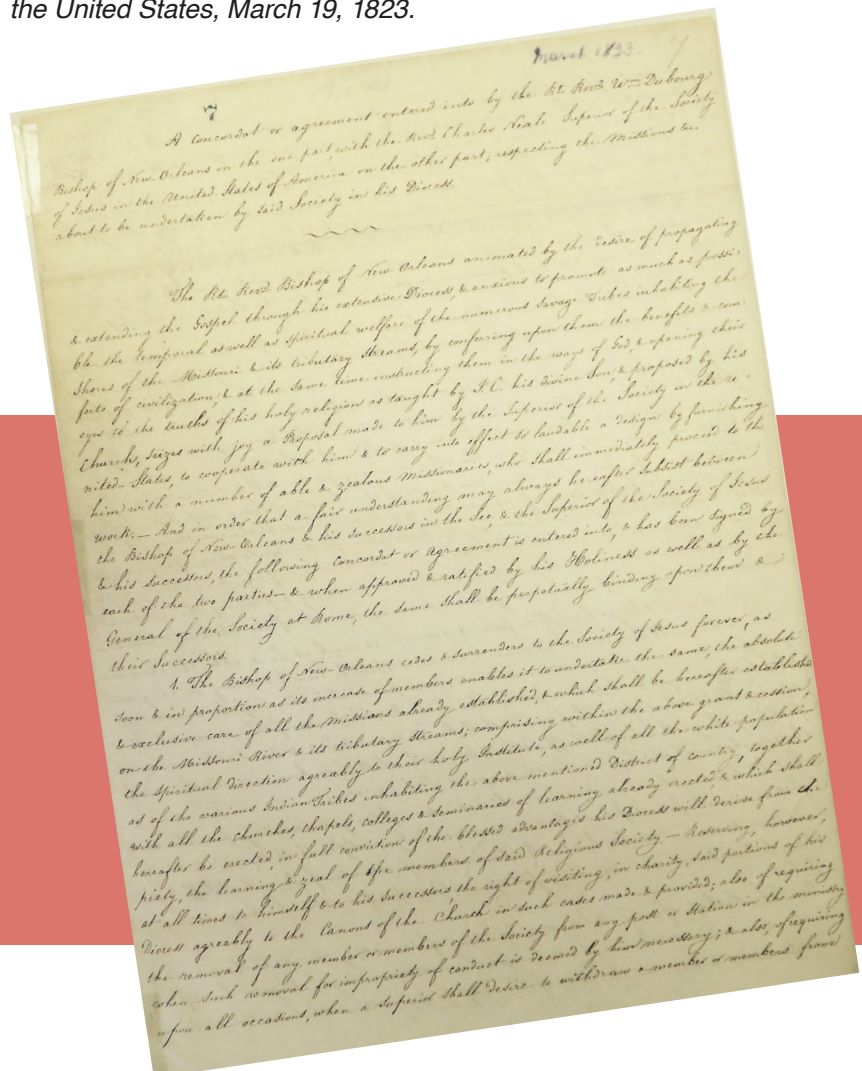 the United States, March 19, 1823.
March 1823. 7
7
A Concordat or agreement entered into by the Rt. Revd. Wm. Dubourg
Bishop of New Orleans on the one part, with the Revd. Charles Neale Superior of the Society
of Jesus in the United States of America on the other part; respecting the Missions &c.
about to be undertaken by said Society in his Diocess.
The Rt. Revd. Bishop of New Orleans animated by the desire of propagating
& extending the Gospel through his extensive Diocess, & anxious to promote as much as possi-
ble the temporal as well as spiritual welfare of the numerous Savage Tribes inhabiting the
Shores of the Missouri & its tributary Streams, by conferring upon them the benefits & com-
forts of civilization, & at the same time instructing them in the ways of God, & opening their
eyes to the truths of his holy religion as taught by J. C. his divine Son, & proposed by his
Church, seizes with joy a Proposal made to him by the Superior of the Society in the U-
nited-States, to cooperate with him & to carry into effect so laudable a design by furnishing
him with a number of able & zealous Missionaries, who shall immediately proceed to the
work.— And in order that a fair understanding may always hereafter subsist between
the Bishop of New-Orleans & his successors in the See, & the Superior of the Society of Jesus
& his successors, the following Concordat or Agreement is entered into, & has been signed by
each of the two parties— & when approved & ratified by his Holiness as well as by the
General of the Society at Rome, the same shall be perpetually binding upon them &
their Successors.
1. The Bishop of New-Orleans cedes & surrenders to the Society of Jesus forever, as
soon & in proportion as its increase of members enables it to undertake the same, the absolute
& exclusive care of all the Missions already established, & which shall be hereafter established
on the Missouri River & its tributary Streams; comprising within the above grant & cession,
the spiritual direction agreably to their holy Institute, as well of all the white population
as of the various Indian Tribes inhabiting the above mentioned District of country, together
with all the Churches, Chapels, colleges & Seminaries of learning already erected, & which shall
hereafter be erected, in full conviction of the blessed advantages his Diocess will derive from the
piety, the learning & zeal of the members of said Religious Society — Reserving, however,
at all times to himself & to his successors the right of visiting, in charity, said portions of his
Diocess agreably to the Canons of the Church in such cases made & provided; also of requiring
the removal of any member or members of the Society from any post or Station in the ministry
when such removal for impropriety of conduct is deemed by him necessary; & also, of requiring
upon all occasions, when a Superior shall desire to withdraw a member or members from